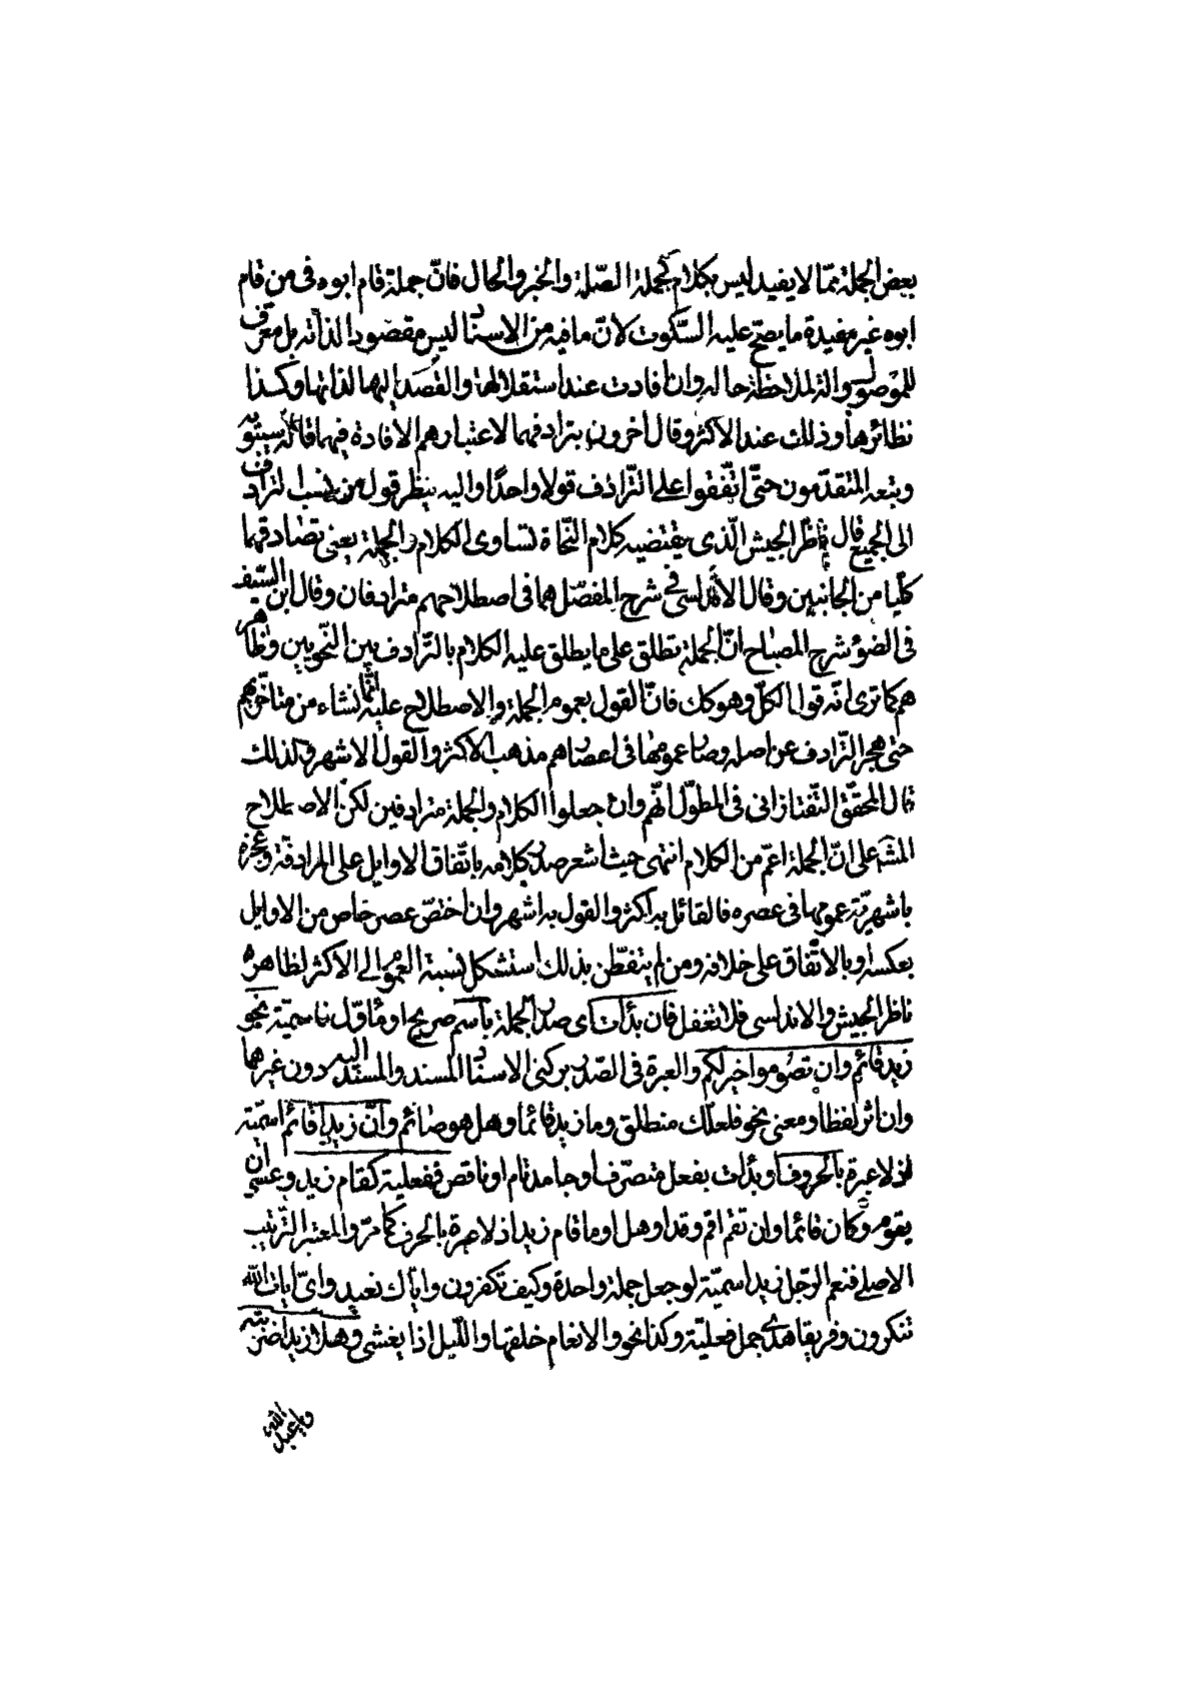 بعض الجملة ممّا لا يفيد ليس بكلام كجملة الصّلة والخبر والحال فانّ جملة قام ابوه فى من قام
ابوه غير مفيدة ما يصحّ عليه السّكوت لانّ ما فيه من الاسناد ليس مقصودا لذاته بل معرّف
للموصول والة لملاحظة حاله وان افادت عند استقلالها والقصد اليها لذاتها وكذا
نظائرها وذلك عند الاكثر وقال اخرون بترادفهما لاعتبارهم الافادة فيهما قاله سيبويه
وتبعه المتقدّمون حتّى اتّفقوا على التّرادف قولا واحدًا واليه ينظر قول من نسب الترادف
الى الجميع قال ناظر الجيش الّذى يقتضيه كلام النّحاة تساوى الكلام والجملة يعنى تصادقهما
كلّيا من الجانبين وقال الاندلسى فى شرح المفصّل هما فى اصطلاحهم مترادفان وقال ابن السّيف
فى الضّوء شرح المصباح انّ الجملة تطلق على ما يطلق عليه الكلام بالتّرادف بين النّحويين وظاهر
هم كما ترى انّه قول الكلّ وهو كك فانّ القول بعموم الجملة والاصطلاح عليه انّما نشاء من متاخّريهم
حتى هجر التّرادف عن اصله وصار عمومها فى اعصارهم مذهب الاكثر والقول الاشهر ولذلك
قال المحقّق التّفتازانى فى المطوّل انّهم وان جعلوا الكلام والجملة مترادفين لكن الاصطلاح
المشه على انّ الجملة اعمّ من الكلام انتهى حيث اشعر صدر كلامه باتّفاق الاوايل على المرادفة وعجزه
باشهريّة عمومها فى عصره فالقائل به اكثر والقول به اشهر وان اختصّ عصر خاص من الاوايل
بعكسه او بالاتّفاق على خلافه ومن لم يتفطّن بذلك استشكل نسبة العموم الى الاكثر لظاهر ه
ناظر الجيش والاندلسى فلا تغفل فان بدأت اى صدر الجملة باسم صريح او مأوّل فاسميّة نحو
زيد قائم وان تصوموا خير لكم والعبرة فى الصّدر بركنى الاسناد المسند والمسند اليه دون غيرهما
وان اثر لفظا ومعنى نحو فلعلّك منطلق وما زيد قائما وهل هو صائم وانّ زيدا قائم اسميّة
اذ لا عبرة بالحروف او بدأت بفعل متصرّف او جامد تام او ناقص ففعلية كقام زيد وعسى ان
يقوم وكان قائما وان تقم اقم وقد او هل او ما قام زيد اذ لا عبرة بالحرف كما مرّ والمعتبر التّرتيب
الاصلى فنعم الرّجل زيد اسميّة لو جعل جملة واحدة وكيف تكفرون واياّك نعبد واىّ ايات الله
تنكرون وفريقا هدى جمل فعليّة وكذا نحو والانعام خلقها واللّيل اذا يغشى وهلّا زيدا ضربته
ويا عبد الله